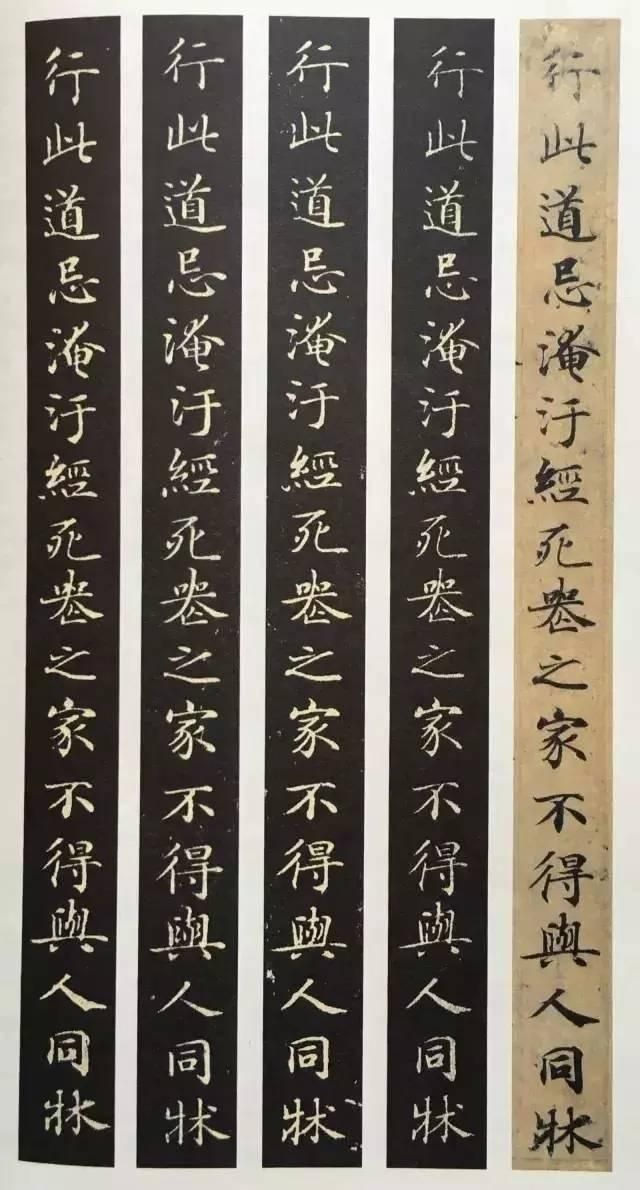 行此道忌淹汙經死喪之家不得與人同牀
行此道忌淹汙經死喪之家不得與人同牀
行此道忌淹汙經死喪之家不得與人同牀
行此道忌淹汙經死喪之家不得與人同牀
行此道忌淹汙經死喪之家不得與人同牀